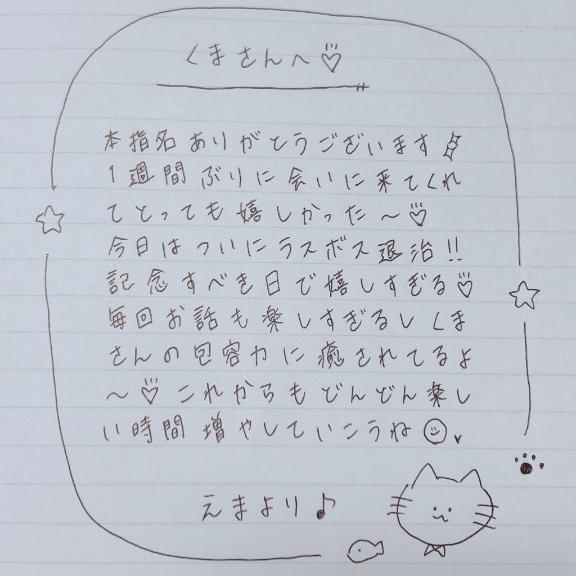 くまさんへ♡
本指名ありがとうございます
1週間ぶりに会いに来てくれ
てとっても嬉しかった〜♡
今日はついにラスボス退治!!
記念すべき日で嬉しすぎる♡
毎回お話も楽しすぎるしくま
さんの包容力に癒されてるよ
〜♡これからもどんどん楽し
い時間増やしていこうね☺
えまより♪